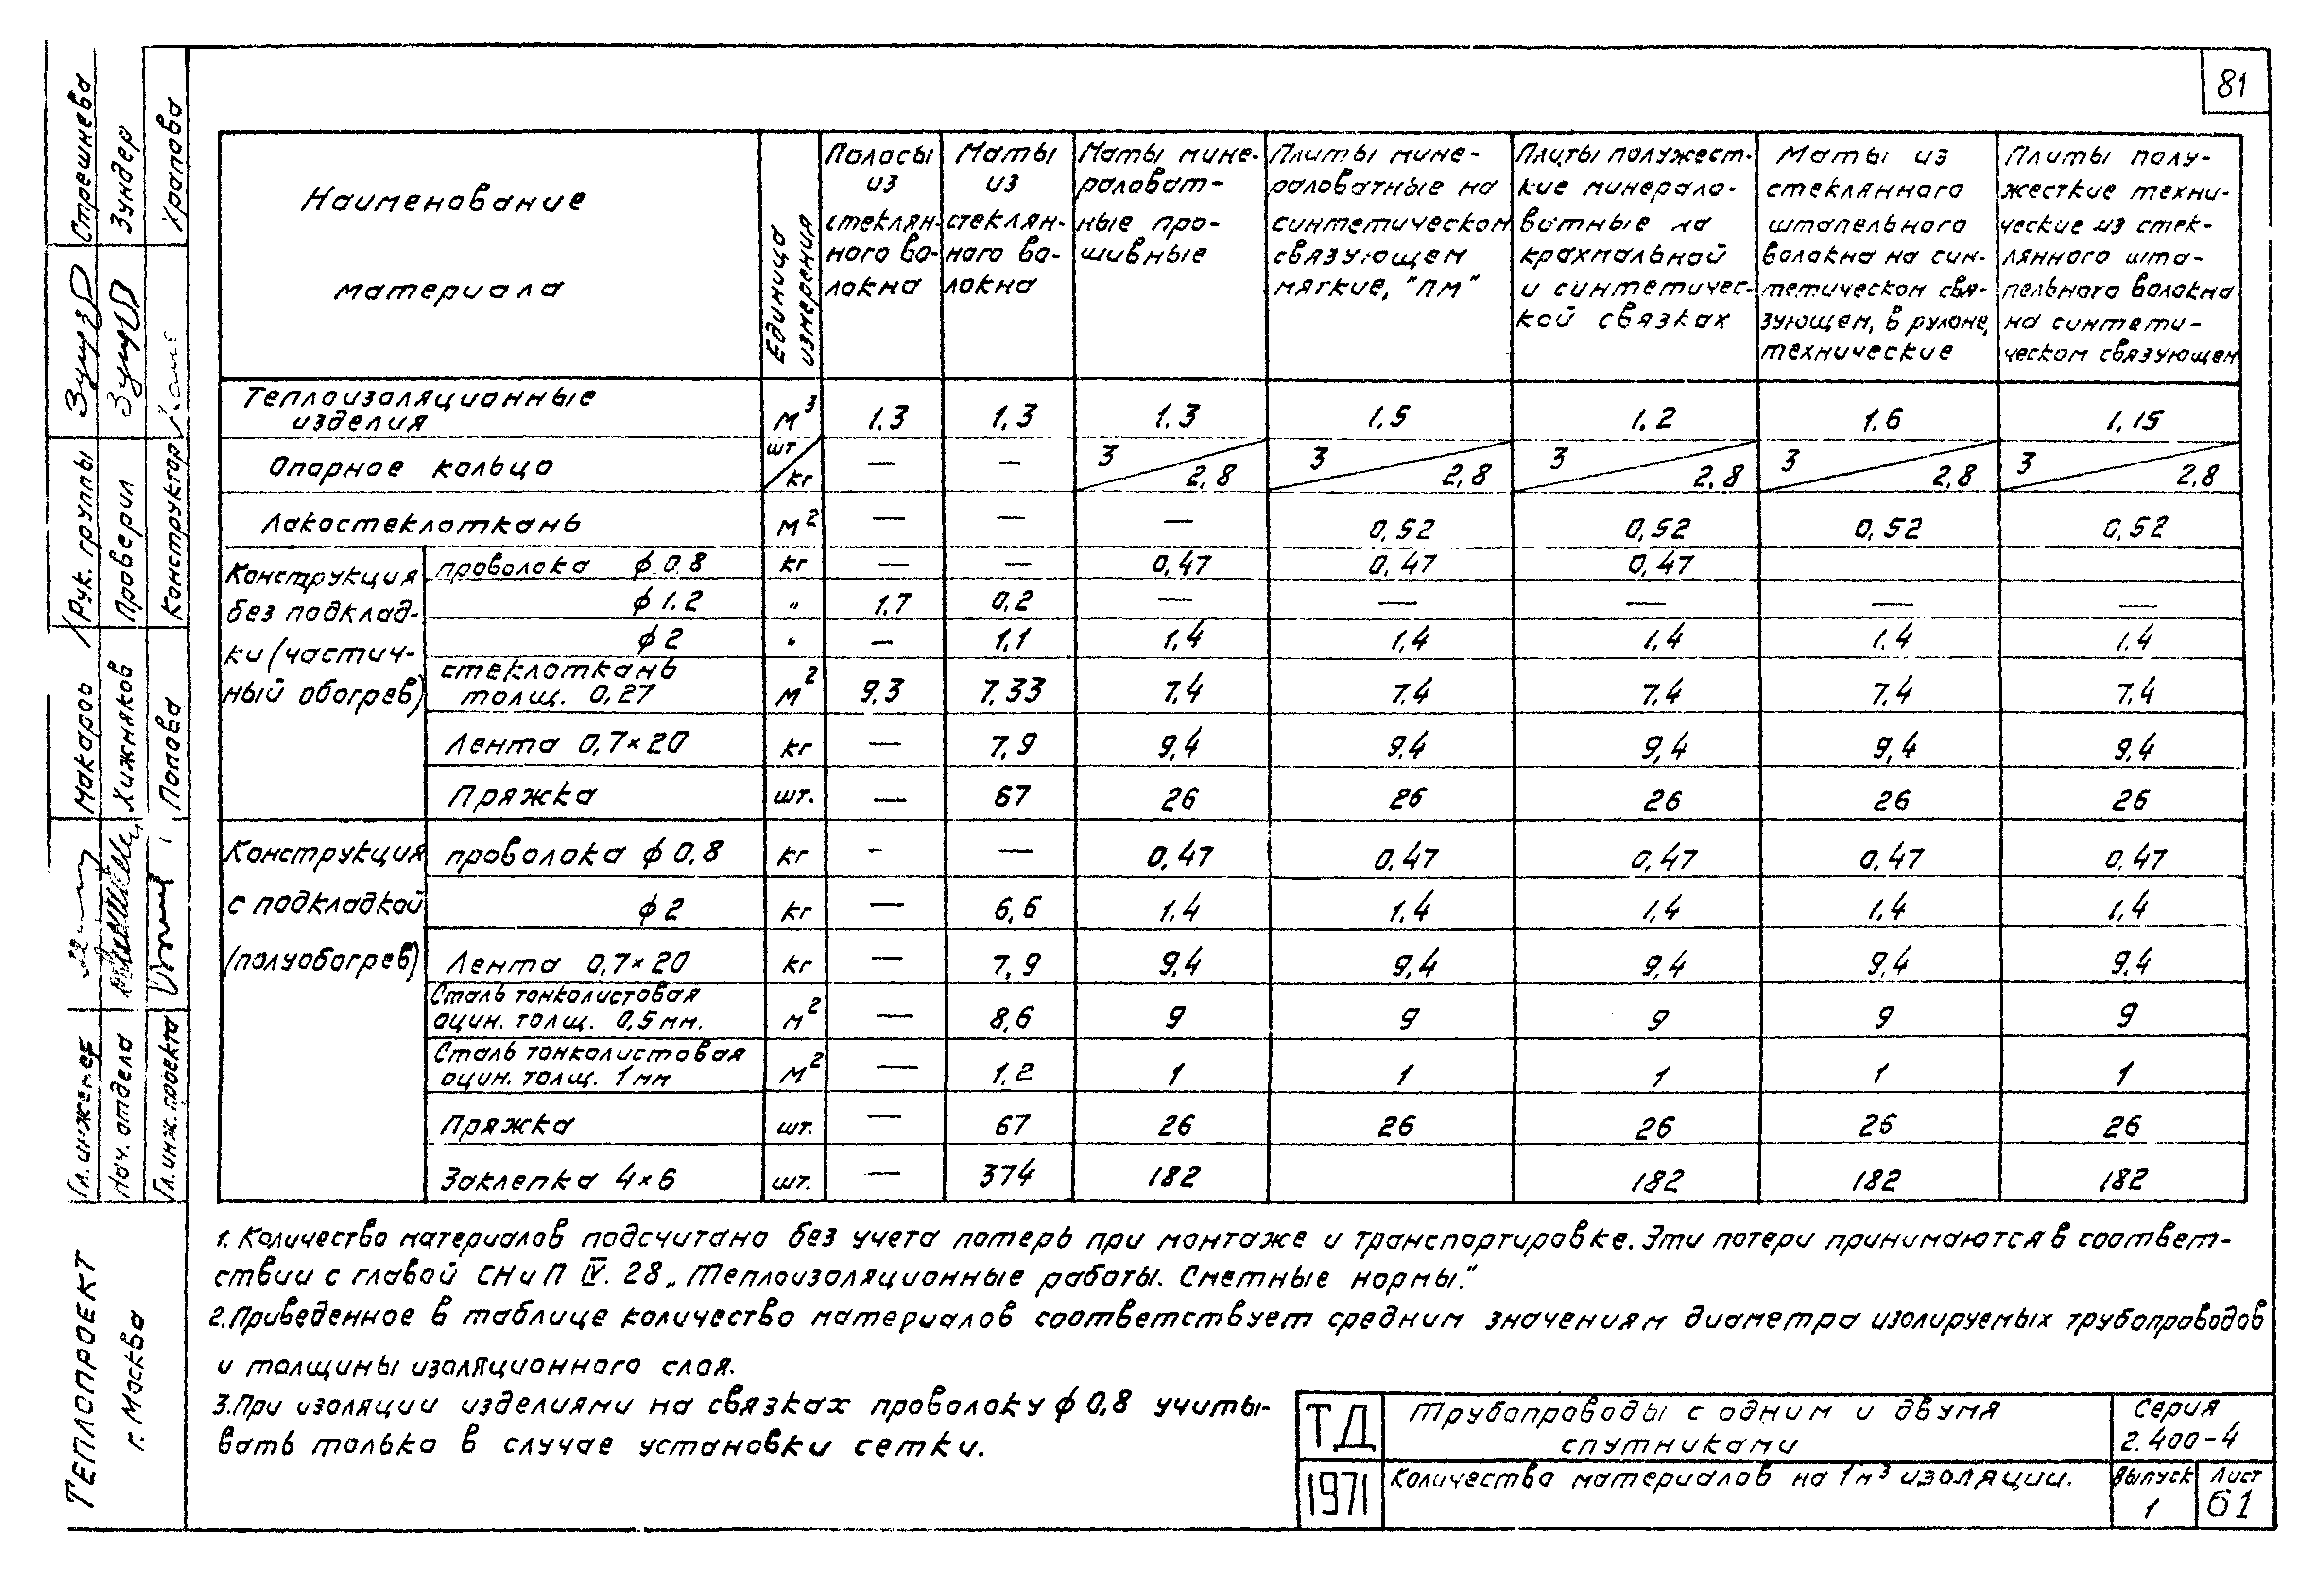 81
Наименование
материала
Единица
измерения
Полосы
из
стеклян-
ного во-
локна
Маты
из
стеклян-
ного во-
локна
Маты мине-
раловат-
ные про-
шивные
Плиты мине-
раловатные на
синтетическом
связующем
мягкие, "ПМ"
Плиты полужест-
кие минерало-
ватные на
крахмальной
и синтетичес-
кой связках
Маты из
стеклянного
штапельного
волокна на син-
тетическом свя-
зующем, в рулоне,
технические
Плиты полу-
жесткие техни-
ческие из стек-
лянного шта-
пельного волокна
на синтети-
ческом связующем
Теплоизоляционные
изделия м³ 1,3 1,3 1.3 1,5 1,2 1.6 1,15
Опорное кольцо шт/кг — — 3/2,8 3/2,8 3/2,8 3/2,8 3/2,8
Лакостеклоткань м² — — — 0,52 0,52 0,52 0,52
Конструкция
без подклад-
ки (частич-
ный обогрев)
проволока ф 0.8 кг — — 0,47 0,47 0,47
ф 1.2 " 1.7 0.2 — — — — —
ф 2 " — 1,1 1,4 1,4 1,4 1.4 1.4
стеклоткань
толщ. 0,27 м² 9,3 7,33 7.4 7.4 7,4 7,4 7,4
Лента 0,7×20 кг — 7,9 9,4 9,4 9,4 9,4 9,4
Пряжка шт. — 67 26 26 26 26 26
Конструкция
с подкладкой
(полуобогрев)
проволока ф 0,8 кг - — 0,47 0,47 0,47 0,47 0,47
ф 2 кг — 6,6 1.4 1.4 1,4 1.4 1.4
Лента 0,7×20 кг — 7,9 9,4 9,4 9,4 9,4 9.4
Сталь тонколистовая
оцин. толщ. 0,5 мм. м² — 8,6 9 9 9 9 9
Сталь тонколистовая
оцин. толщ. 1 мм м² — 1,2 1 1 1 1 1
Пряжка шт. — 67 26 26 26 26 26
Заклепка 4×6 шт. — 374 182 182 182 182
1. Количество материалов подсчитано без учета потерь при монтаже и транспортировке. Эти потери принимаются в соответ-
ствии с главой СНиП IV. 28 „Теплоизоляционные работы. Сметные нормы."
2. Приведенное в таблице количество материалов соответствует средним значениям диаметра изолируемых трубопроводов
и толщины изоляционного слоя.
3. При изоляции изделиями на связках проволоку ф 0,8 учиты-
вать только в случае установки сетки.
ТД
1971
Трубопроводы с одним и двумя
спутниками
Серия
2.400-4
Количество материалов на 1м³ изоляции.
Выпуск
1
Лист
61
Гл. инженер Макаров Рук. группы Стрешнева
Нач. отдела Хижняков Проверил Зундер
Гл. инж. проекта Попова Конструктор Храпова
ТЕПЛОПРОЕКТ
г. Москва